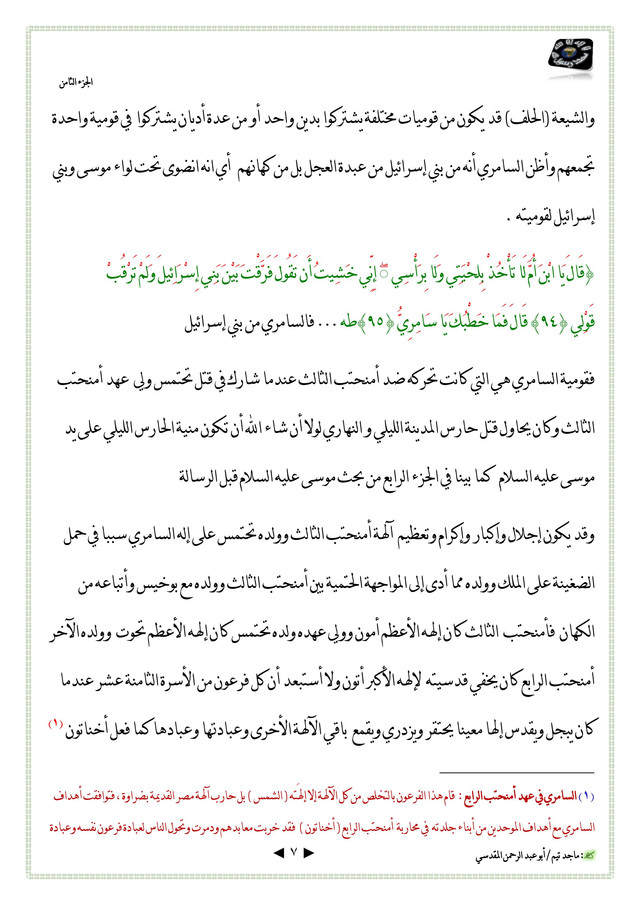 الجزء الثامن
والشيعة (الحلف) قد يكون من قوميات مختلفة يشتركوا بدين واحد أو من عدة أديان يشتركوا في قومية واحدة
تجمعهم وأظن السامري أنه من بني إسرائيل من عبدة العجل بل من كهانهم أي انه انضوى تحت لواء موسى وبني
إسرائيل لقوميته .
﴿قَالَ يَا ابْنَ أُمَّ لَا تَأْخُذْ بِلِحْيَتِي وَلَا بِرَأْسِي ۖ إِنِّي خَشِيتُ أَن تَقُولَ فَرَّقْتَ بَيْنَ بَنِي إِسْرَائِيلَ وَلَمْ تَرْقُبْ
قَوْلِي ﴿٩٤﴾ قَالَ فَمَا خَطْبُكَ يَا سَامِرِيُّ ﴿٩٥﴾ طه ... فالسامري من بني إسرائيل
فقومية السامري هي التي كانت تحركه ضد أمنحتب الثالث عندما شارك في قتل تحتمس ولي عهد أمنحتب
الثالث وكان يحاول قتل حارس المدينة الليلي و النهاري لولا أن شاء الله أن تكون منية الحارس الليلي على يد
موسى عليه السلام كما بينا في الجزء الرابع من بحث موسى عليه السلام قبل الرسالة
وقد يكون إجلال وإكبار وإكرام وتعظيم آلهة أمنحتب الثالث وولده تحتمس على إله السامري سببا في حمل
الضغينة على الملك وولده مما أدى إلى المواجهة الحتمية بين أمنحتب الثالث وولده مع بوخيس وأتباعه من
الكهان فأمنحتب الثالث كان إلهه الأعظم أمون وولي عهده ولده تحتمس كان إلهه الأعظم تحوت وولده الآخر
أمنحتب الرابع كان يخفي قدسيته لإلهه الأكبر أتون ولا أستبعد أن كل فرعون من الأسرة الثامنة عشر عندما
كان يبجل ويقدس إلها معينا يحتقر ويزدري ويقمع باقي الآلهة الأخرى وعبادتها وعبادها كما فعل أخناتون (١)
(١) السامري في عهد أمنحتب الرابع : قام هذا الفرعون بالتخلص من كل الآلهة إلا إلهَته ( الشمس ) بل حارب آلهة مصر القديمة بضراوة ، فتوافقت أهداف
السامري مع أهداف الموحدين من أبناء جلدته في محاربة أمنحتب الرابع ( أخناتون ) فقد خربت معابدهم ودمرت وتحول الناس لعبادة فرعون نفسه وعبادة
: ماجد تيم / أبو عبد الرحمن المقدسي
◄ ٧ ►